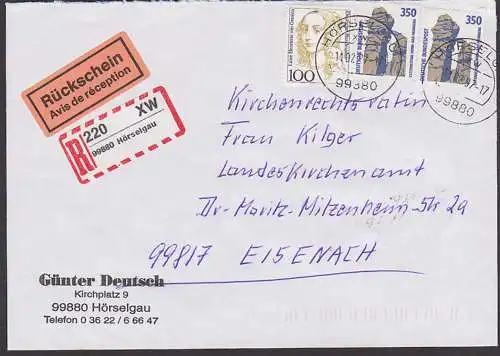 Rückschein
Avis de réception
R 220 XW
99880 Hörselgau
100
350
350
DEUTSCHE BUNDESPOST
HÖRSELGAU
99880
HÖRSELGAU
99880
Kirchenrechtsrätin
Frau Kilger
Landeskirchenamt
Dr.-Moritz-Mitzenheim-Str 2a
99817 EISENACH
Günter Deutsch
Kirchplatz 9
99880 Hörselgau
Telefon 0 36 22 / 6 66 47